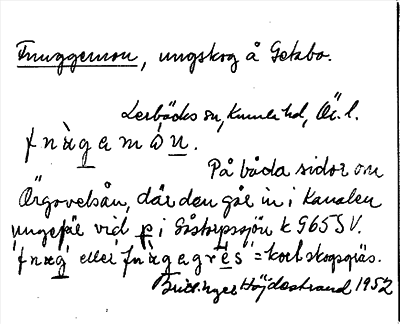 Fnuggemon, ungskog å Getabo.
Lerbäcks sn, Kumla hd, Ör. l.
fnàgamón.
På båda sidor om
Örgavelsån, där den går in i Kanalen
ungefär vid p i Såstorpssjön k G65SV.
'fnæg' eller 'fnægagrés' = kort skogsgräs.
Britt Inger Höjdestrand 1952